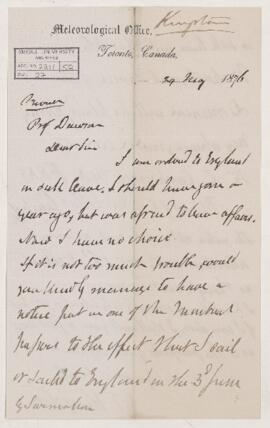 Meteorological Office,
Kingston
Toronto, Canada.
McGILL UNIVERSITY
ARCHIVES
ACC. NO. 2211 52
REF. 27
24 May 1876
Private
Prof Dawson
Dear Sir
I am ordered to England
on sick leave, I should have gone a
year ago, but was afraid to leave affairs.
Now I have no choice.
If it is not too much trouble, would
you kindly manage to have a
notice put in one of the Montreal
papers to the effect that I sail
or sailed to England on the 3d June
by Sarmatian